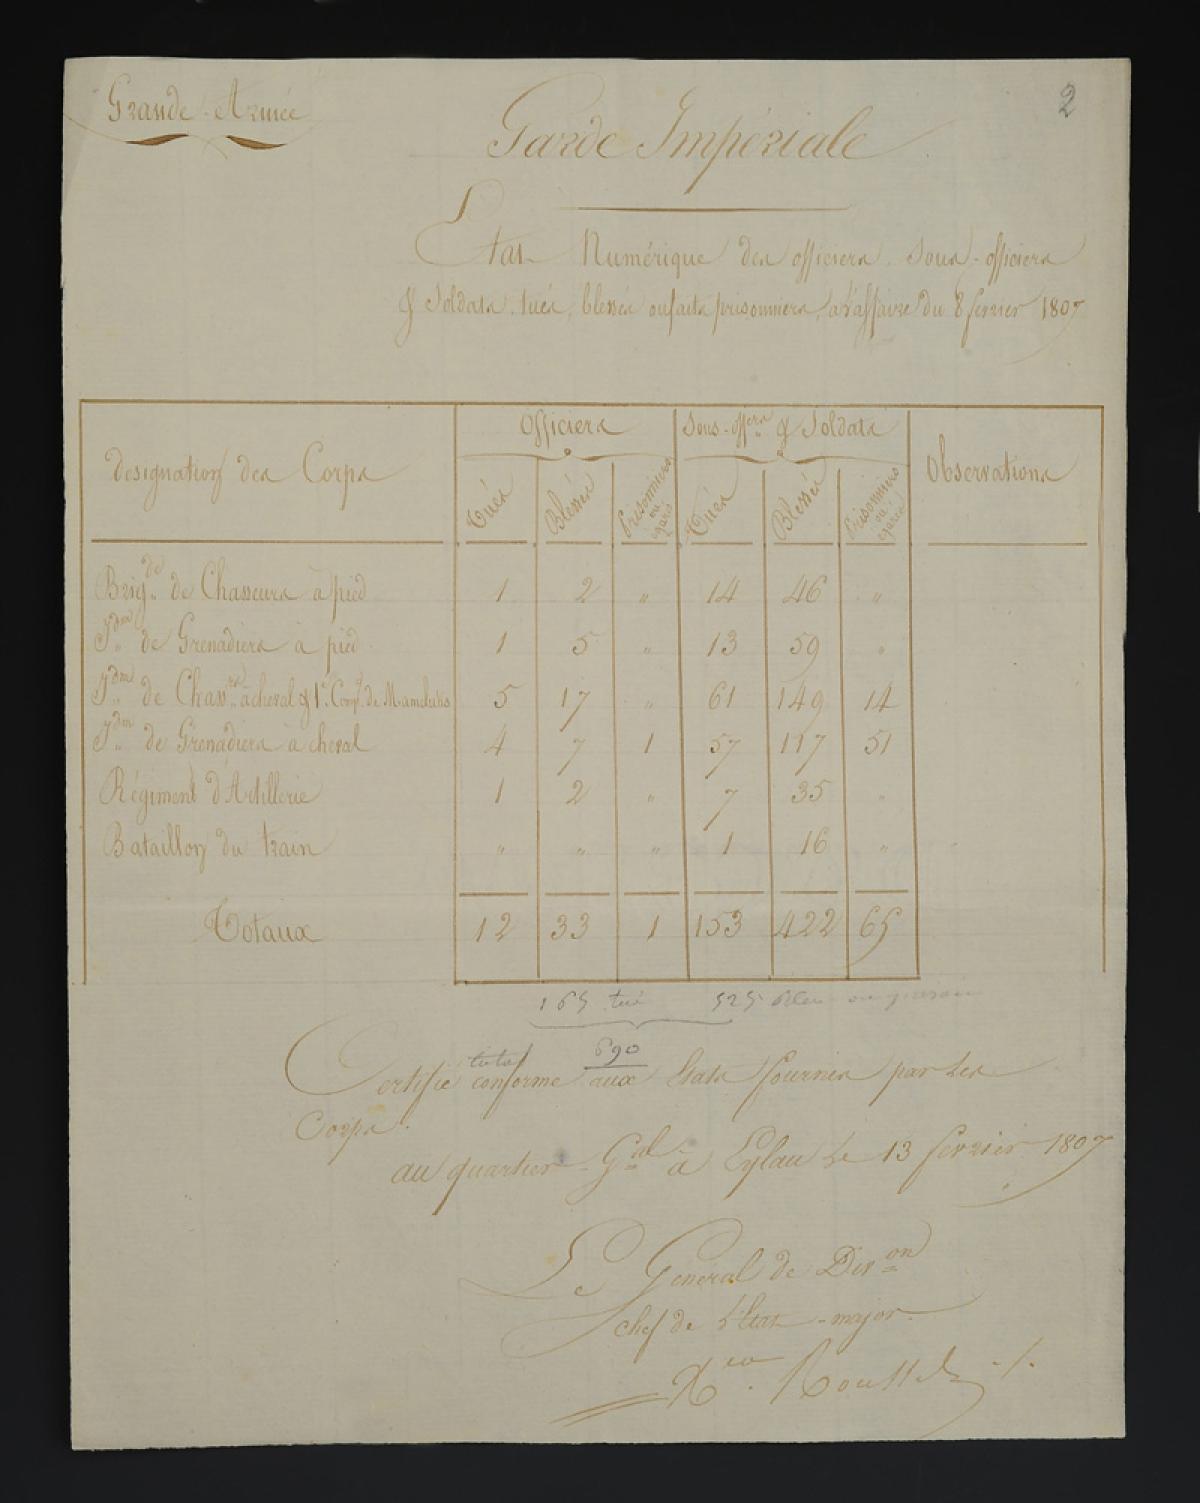 2
Grande-Armée
Garde Impériale
Etat Numérique des officiers, sous-officiers
& Soldats, tués, blessés ou faits prisonniers, à l'affaire du 8 fevrier 1807
designation des Corps
Officiers
Sous-offers & Soldats
Observations
Tués
Blessés
Prisonniers ou egarés
Tués
Blessés
Prisonniers ou egarés
Brigde de Chasseurs à pied 1 2 " 14 46 "
Idm de Grenadiers à pied 1 5 " 13 59 "
Idm de Chassrs à cheval & 1e Compe de Mameluks 5 17 " 61 149 14
Idm de Grenadiers à cheval 4 7 1 57 117 51
Régiment d'Artillerie 1 2 " 7 35 "
Bataillon du train " " " 1 16 "
Totaux 12 33 1 153 422 65
165 tué 525 bles ou
total 690
Certifié conforme aux Etats fournis par les
Corps.
au quartier-Gal à Eylau le 13 fevrier 1807
Le Général de Divon
chef de l'Etat-major.
Xer Roussel